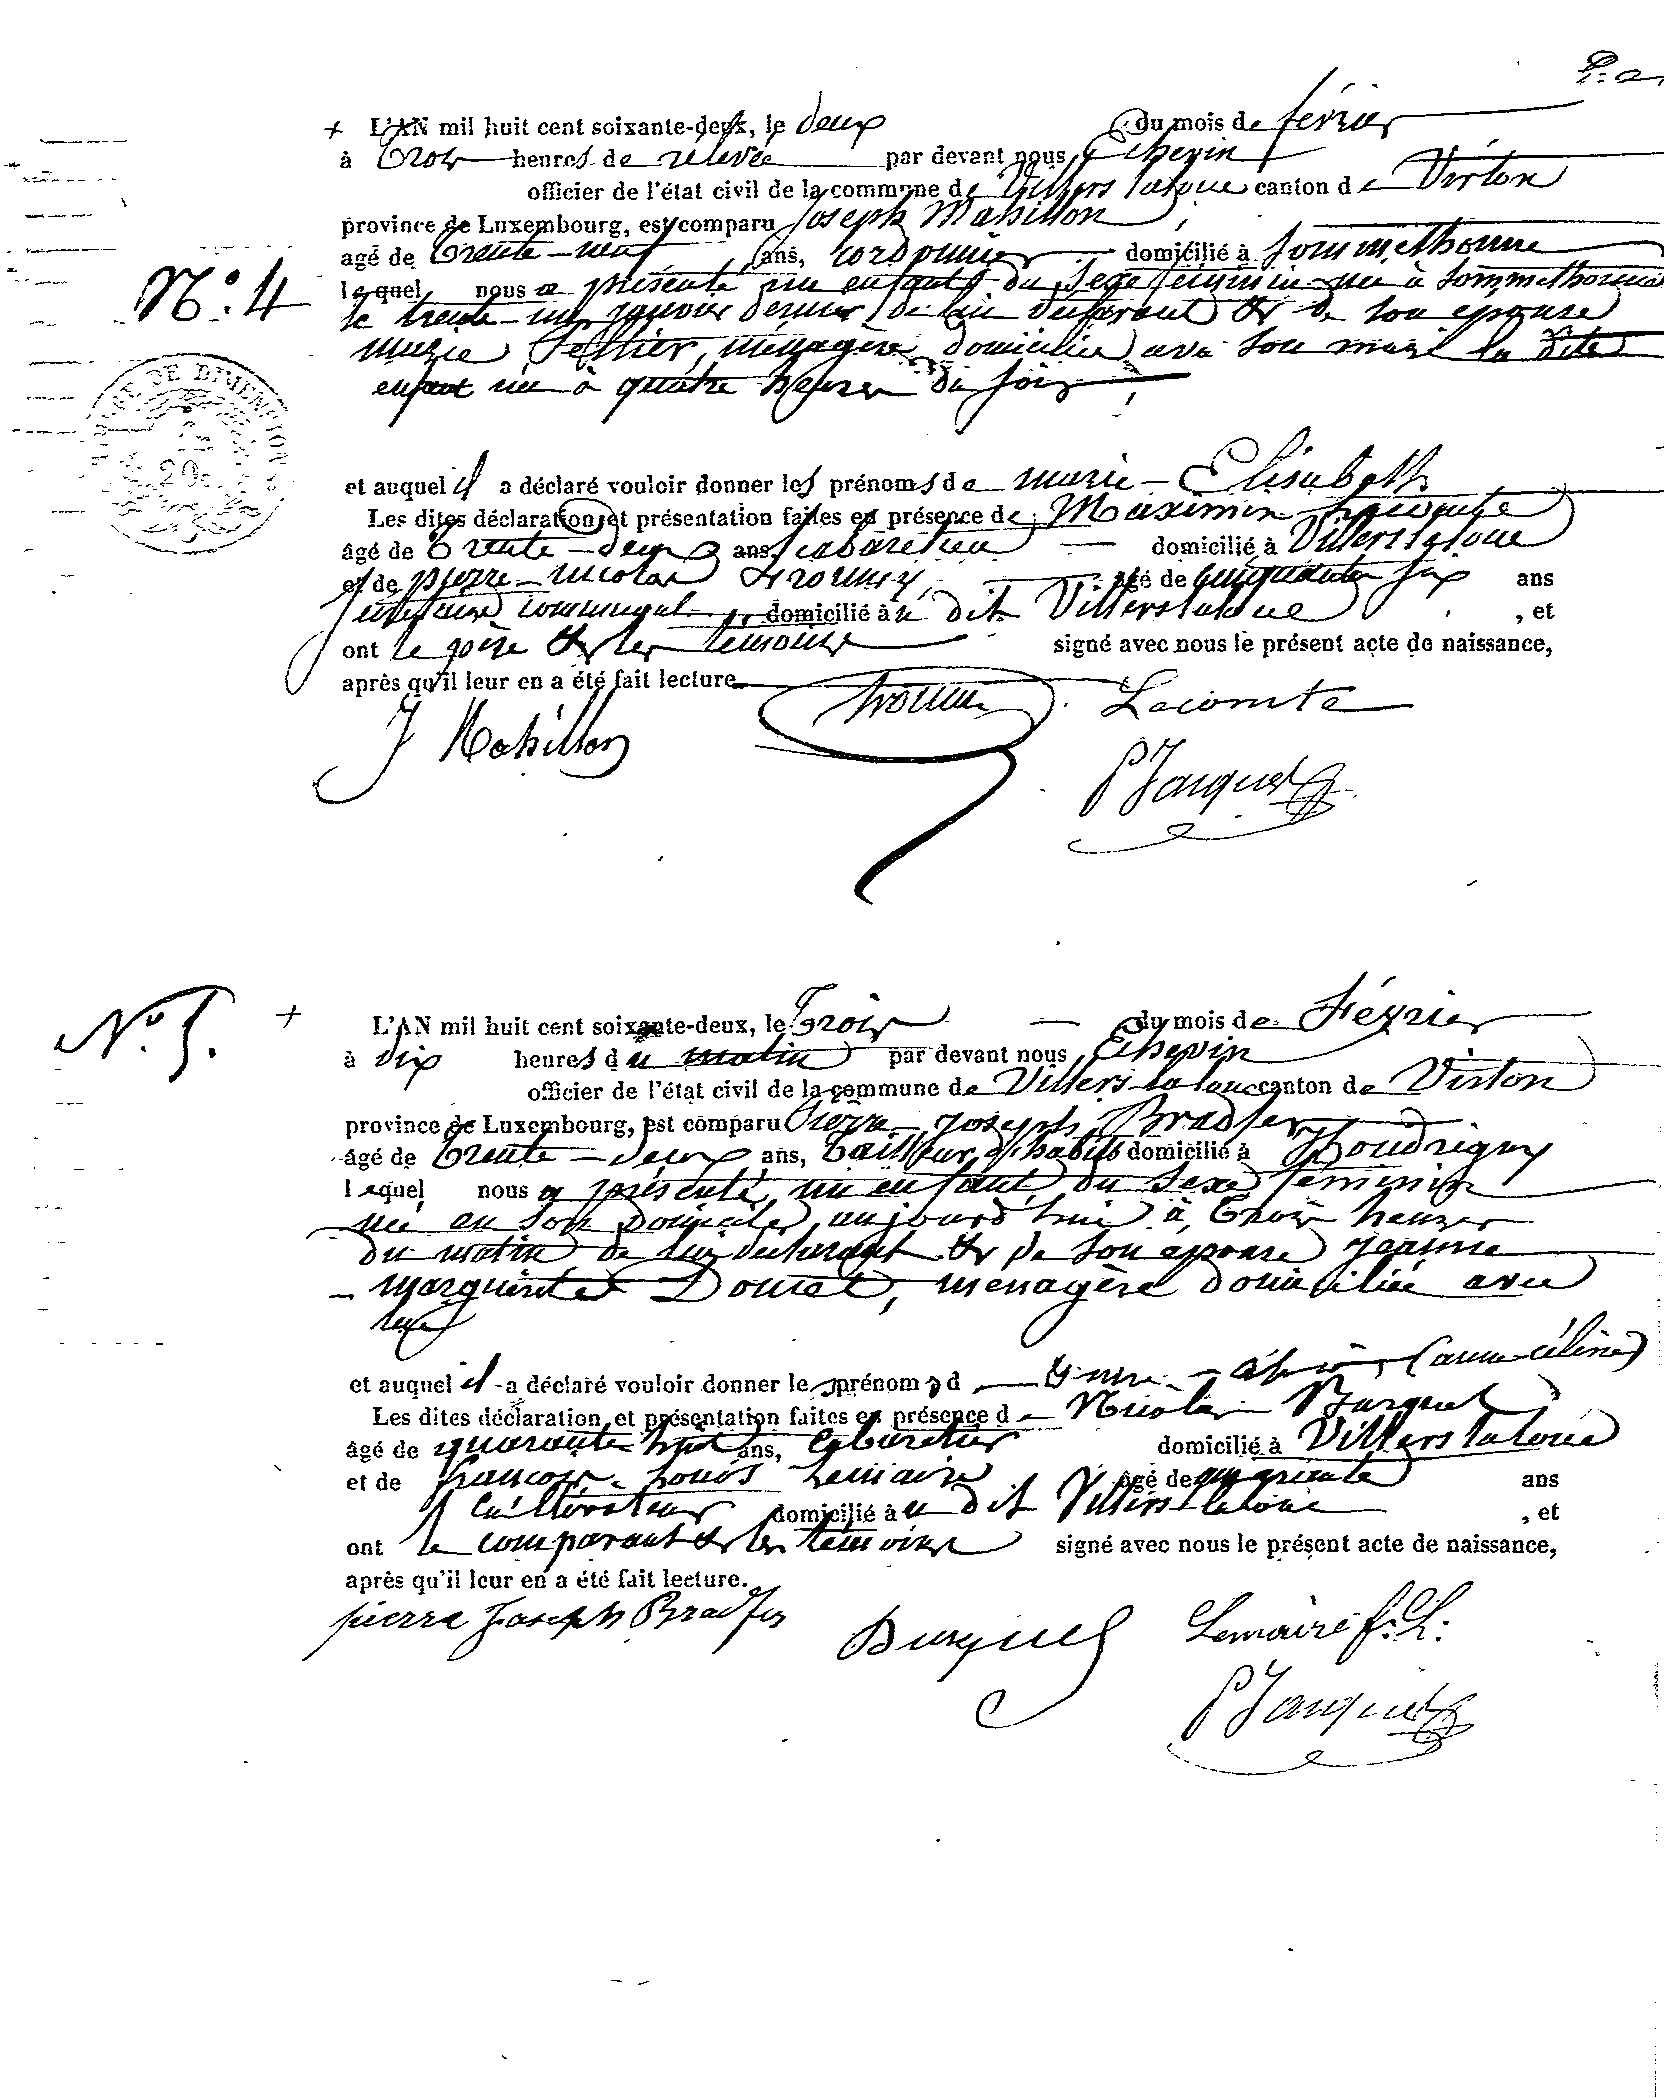 + L'AN mil huit cent soixante-deux, le deux du mois de février
à trois heures de relevée par devant nous, Echevin
officier de l'état civil de la commune de Villers latoue canton de Virton
province de Luxembourg, est comparu Joseph Mahillon
agé de trente-neuf ans, cordonnier domicilié à Sommethonne
lequel nous a présenté un enfant du sexe féminin née à Sommethonne
N°. 4
le trente-un janvier dernier, de lui déclarant & de son épouse
Marie Tellier, ménagère domiciliée avec son mari la dite
enfant née à quatre heures du soir
et auquel il a déclaré vouloir donner les prénoms de marie-Elisabeth
Les dites déclaration et présentation faites en présence de Maximin Lacomte
âgé de trente-deux ans, cabaretier domicilié à Villers latoue
et de pierre-nicolas agé de cinquante six ans
communal domicilié à u dit Villers latoue , et
ont le père & les témoins signé avec nous le présent acte de naissance,
après qu'il leur en a été fait lecture.
Lacomte
J Mahillon
P Jacques
N° 5.
+ L'AN mil huit cent soixante-deux, le trois du mois de Février
à dix heures du matin par devant nous Echevin
officier de l'état civil de la commune de Villers-latoue canton de Virton
province de Luxembourg, est comparu Pierre-Joseph Bradfer
âgé de trente-deux ans, tailleur d'habits domicilié à Houdrigny
lequel nous a présenté, un enfant, du sexe féminin
née en son domicile, aujourd'hui à trois heures
du matin de lui déclarant & de son épouse Jeanne
marguerite Doucet, ménagère domiciliée avec
lui
et auquel il a déclaré vouloir donner les prénoms d (anne-céline)
Les dites déclaration et présentation faites en présence de Nicolas Burquel
âgé de quarante huit ans, cabaretier domicilié à Villers latoue
et de françois-Louis Lemaire âgé de ans
cultivateur domicilié à u dit Villers-latoue , et
ont le comparant & les témoins signé avec nous le présent acte de naissance,
après qu'il leur en a été fait lecture.
pierre Joseph Bradfer
Burquel
Lemaire f. L.
P Jacques